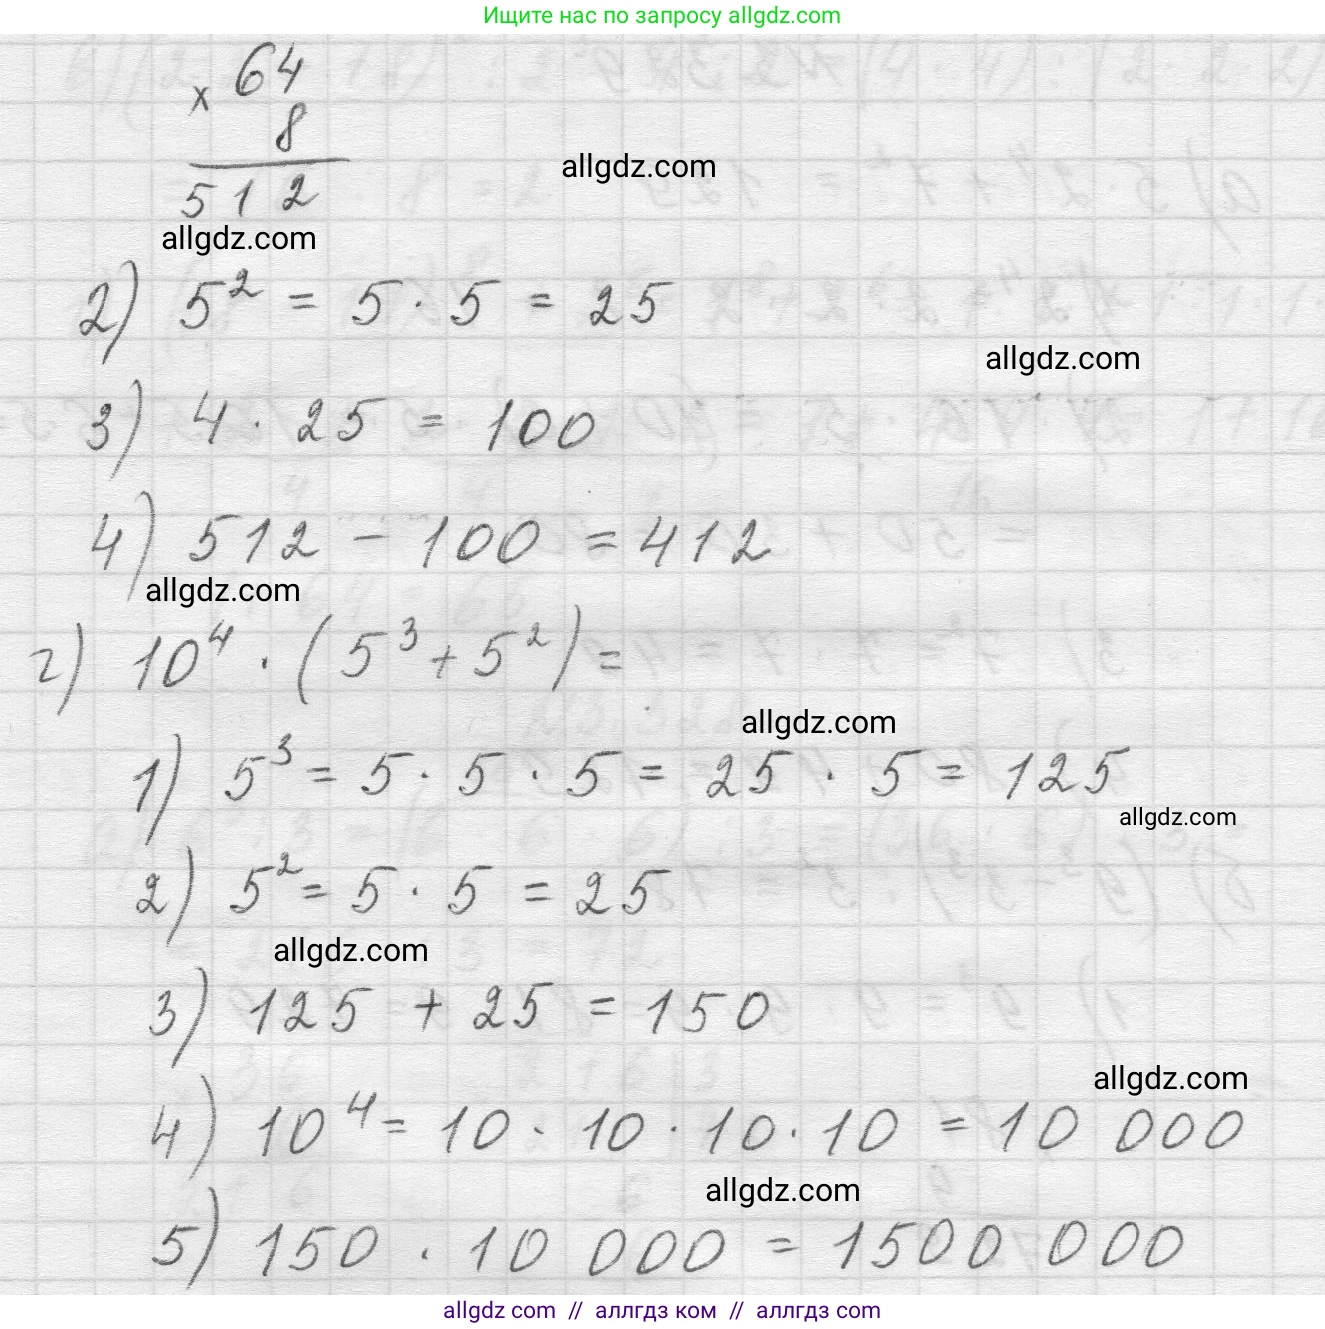 Ищите нас по запросу allgdz.com
× 64
8
512
allgdz.com
allgdz.com
2) 5² = 5 · 5 = 25
allgdz.com
3) 4 · 25 = 100
4) 512 - 100 = 412
allgdz.com
г) 10⁴ · (5³ + 5²) =
allgdz.com
1) 5³ = 5 · 5 · 5 = 25 · 5 = 125
allgdz.com
2) 5² = 5 · 5 = 25
allgdz.com
3) 125 + 25 = 150
allgdz.com
4) 10⁴ = 10 · 10 · 10 · 10 = 10 000
allgdz.com
5) 150 · 10 000 = 1500 000
allgdz com // аллгдз ком // аллгдз com